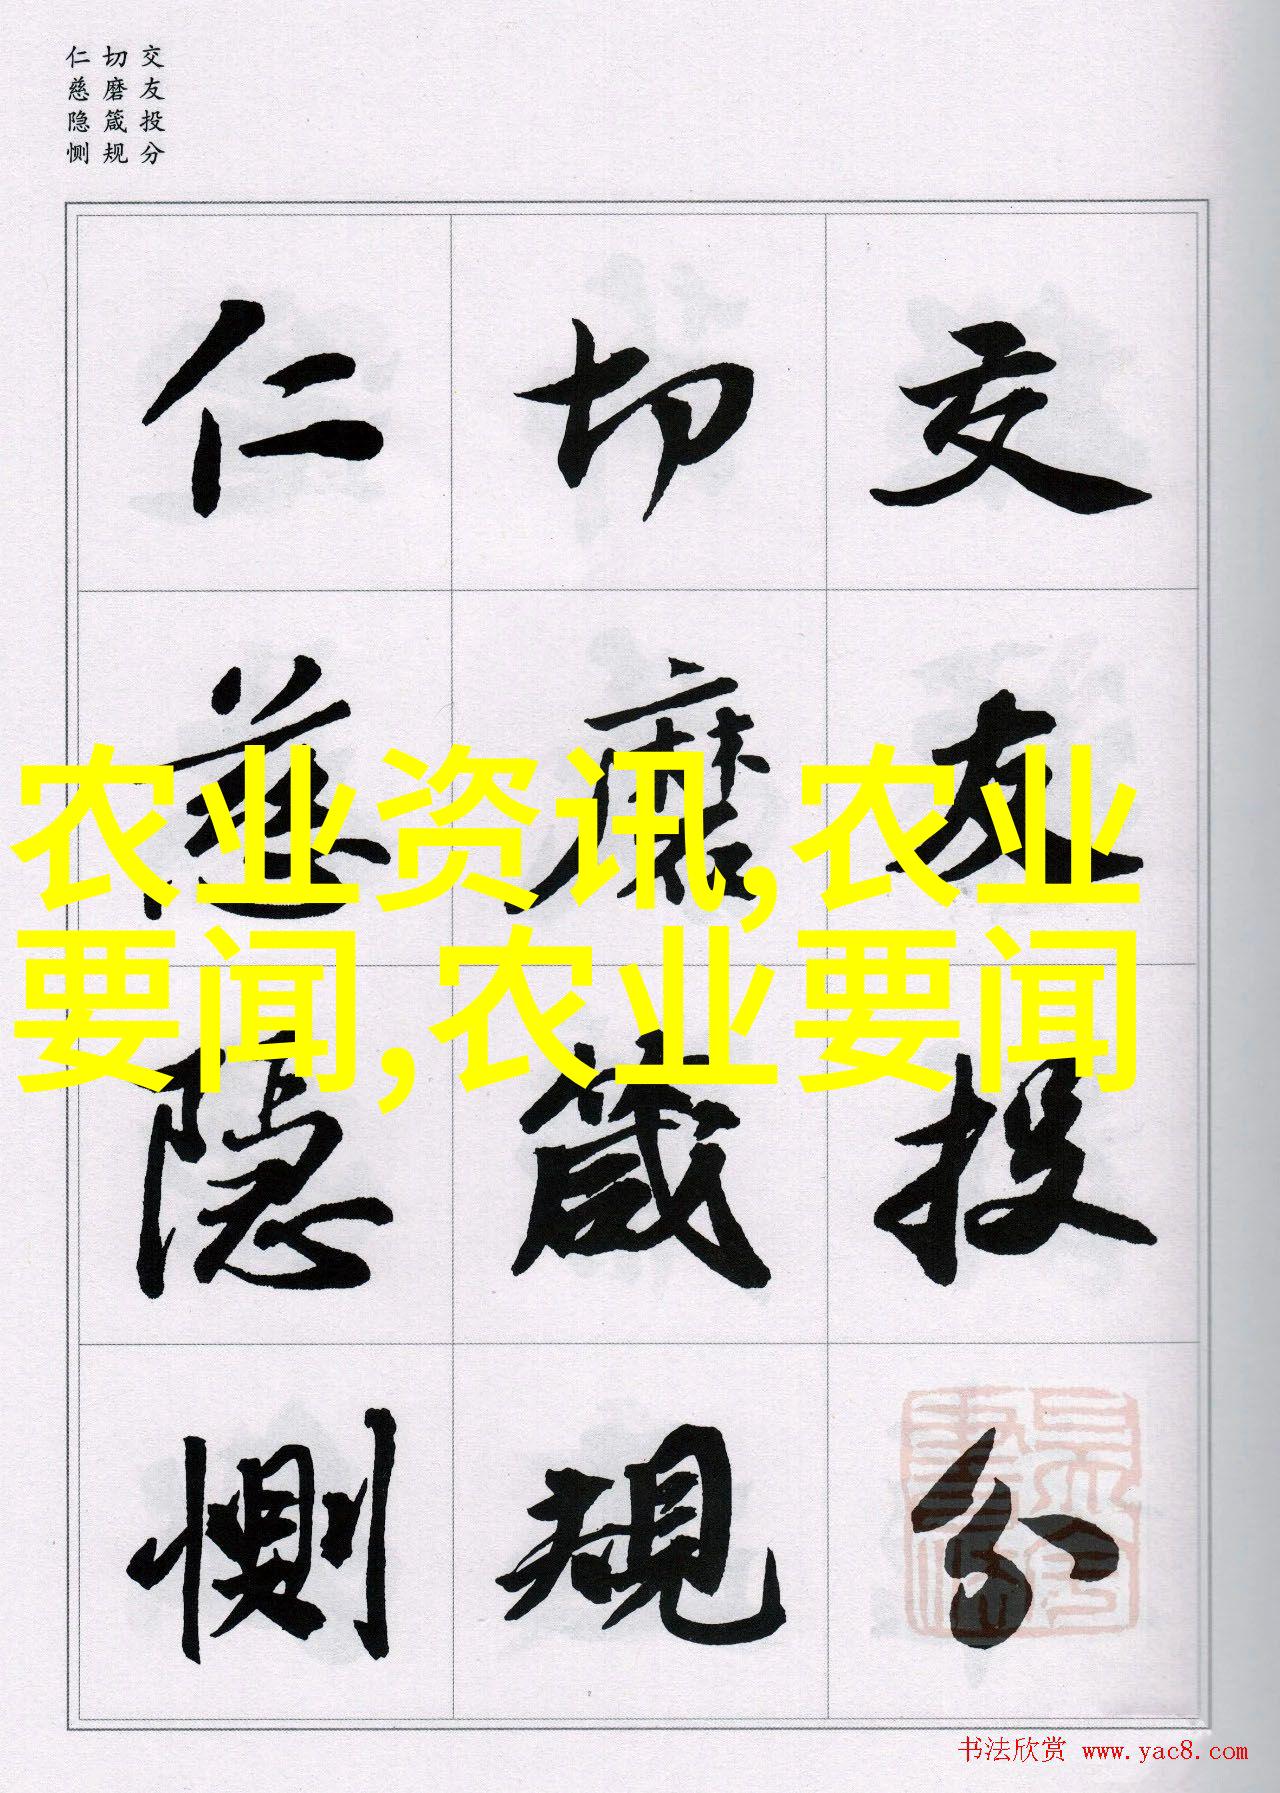 交友投分
切磨箴规
仁慈隐恻
交友投分
切磨箴规
仁慈隐恻
农业资讯,农业
要闻,农业要闻
书法欣赏 www.yac8.com